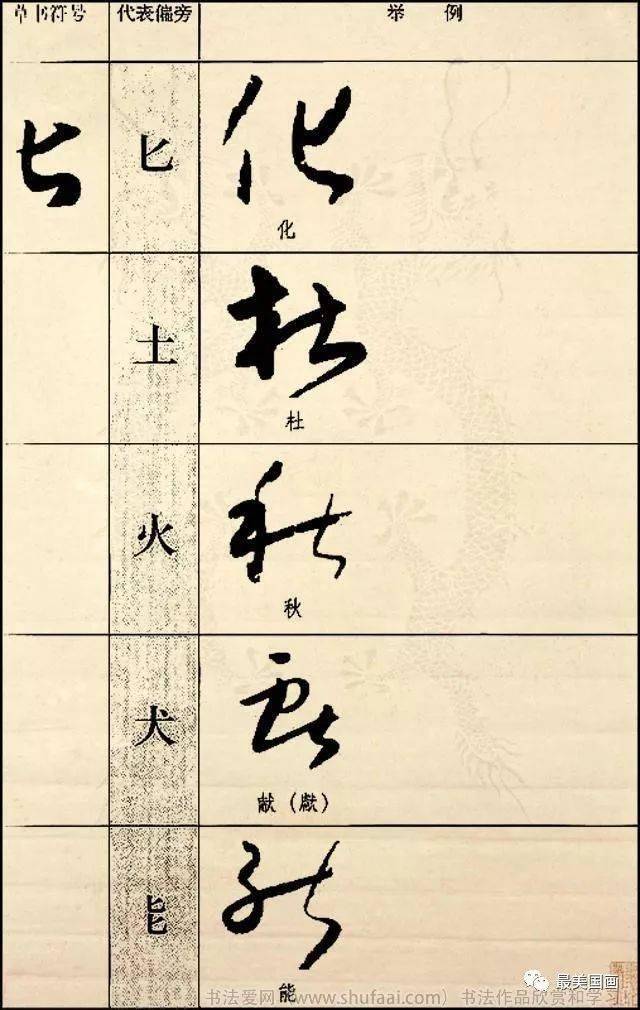 草书符号 代表偏旁 举例
匕 化
化
土 杜
杜
火 秋
秋
犬 献
献（獻）
能
能
书法爱网（www.shufaai.com） 书法作品欣赏和学习
最美国画